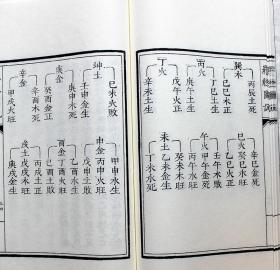 丙辰土死
巽木
己巳木正
丙火
戊午火正
庚午土生
丁火
辛未土生
辛巳金死
癸巳水旺
巳火
壬午木敗
甲午金死
午火
癸未木旺
乙未金生
丁未水死
未土
己未火敗
坤土
壬申金生
庚金
癸酉金正
辛酉木死
辛金
甲戌火旺
甲申水生
丙申火旺
戊申土敗
申金
乙酉水生
丁酉火旺
己酉土敗
酉金
丙戌土正
戊戌木旺
庚戌金生
戌土